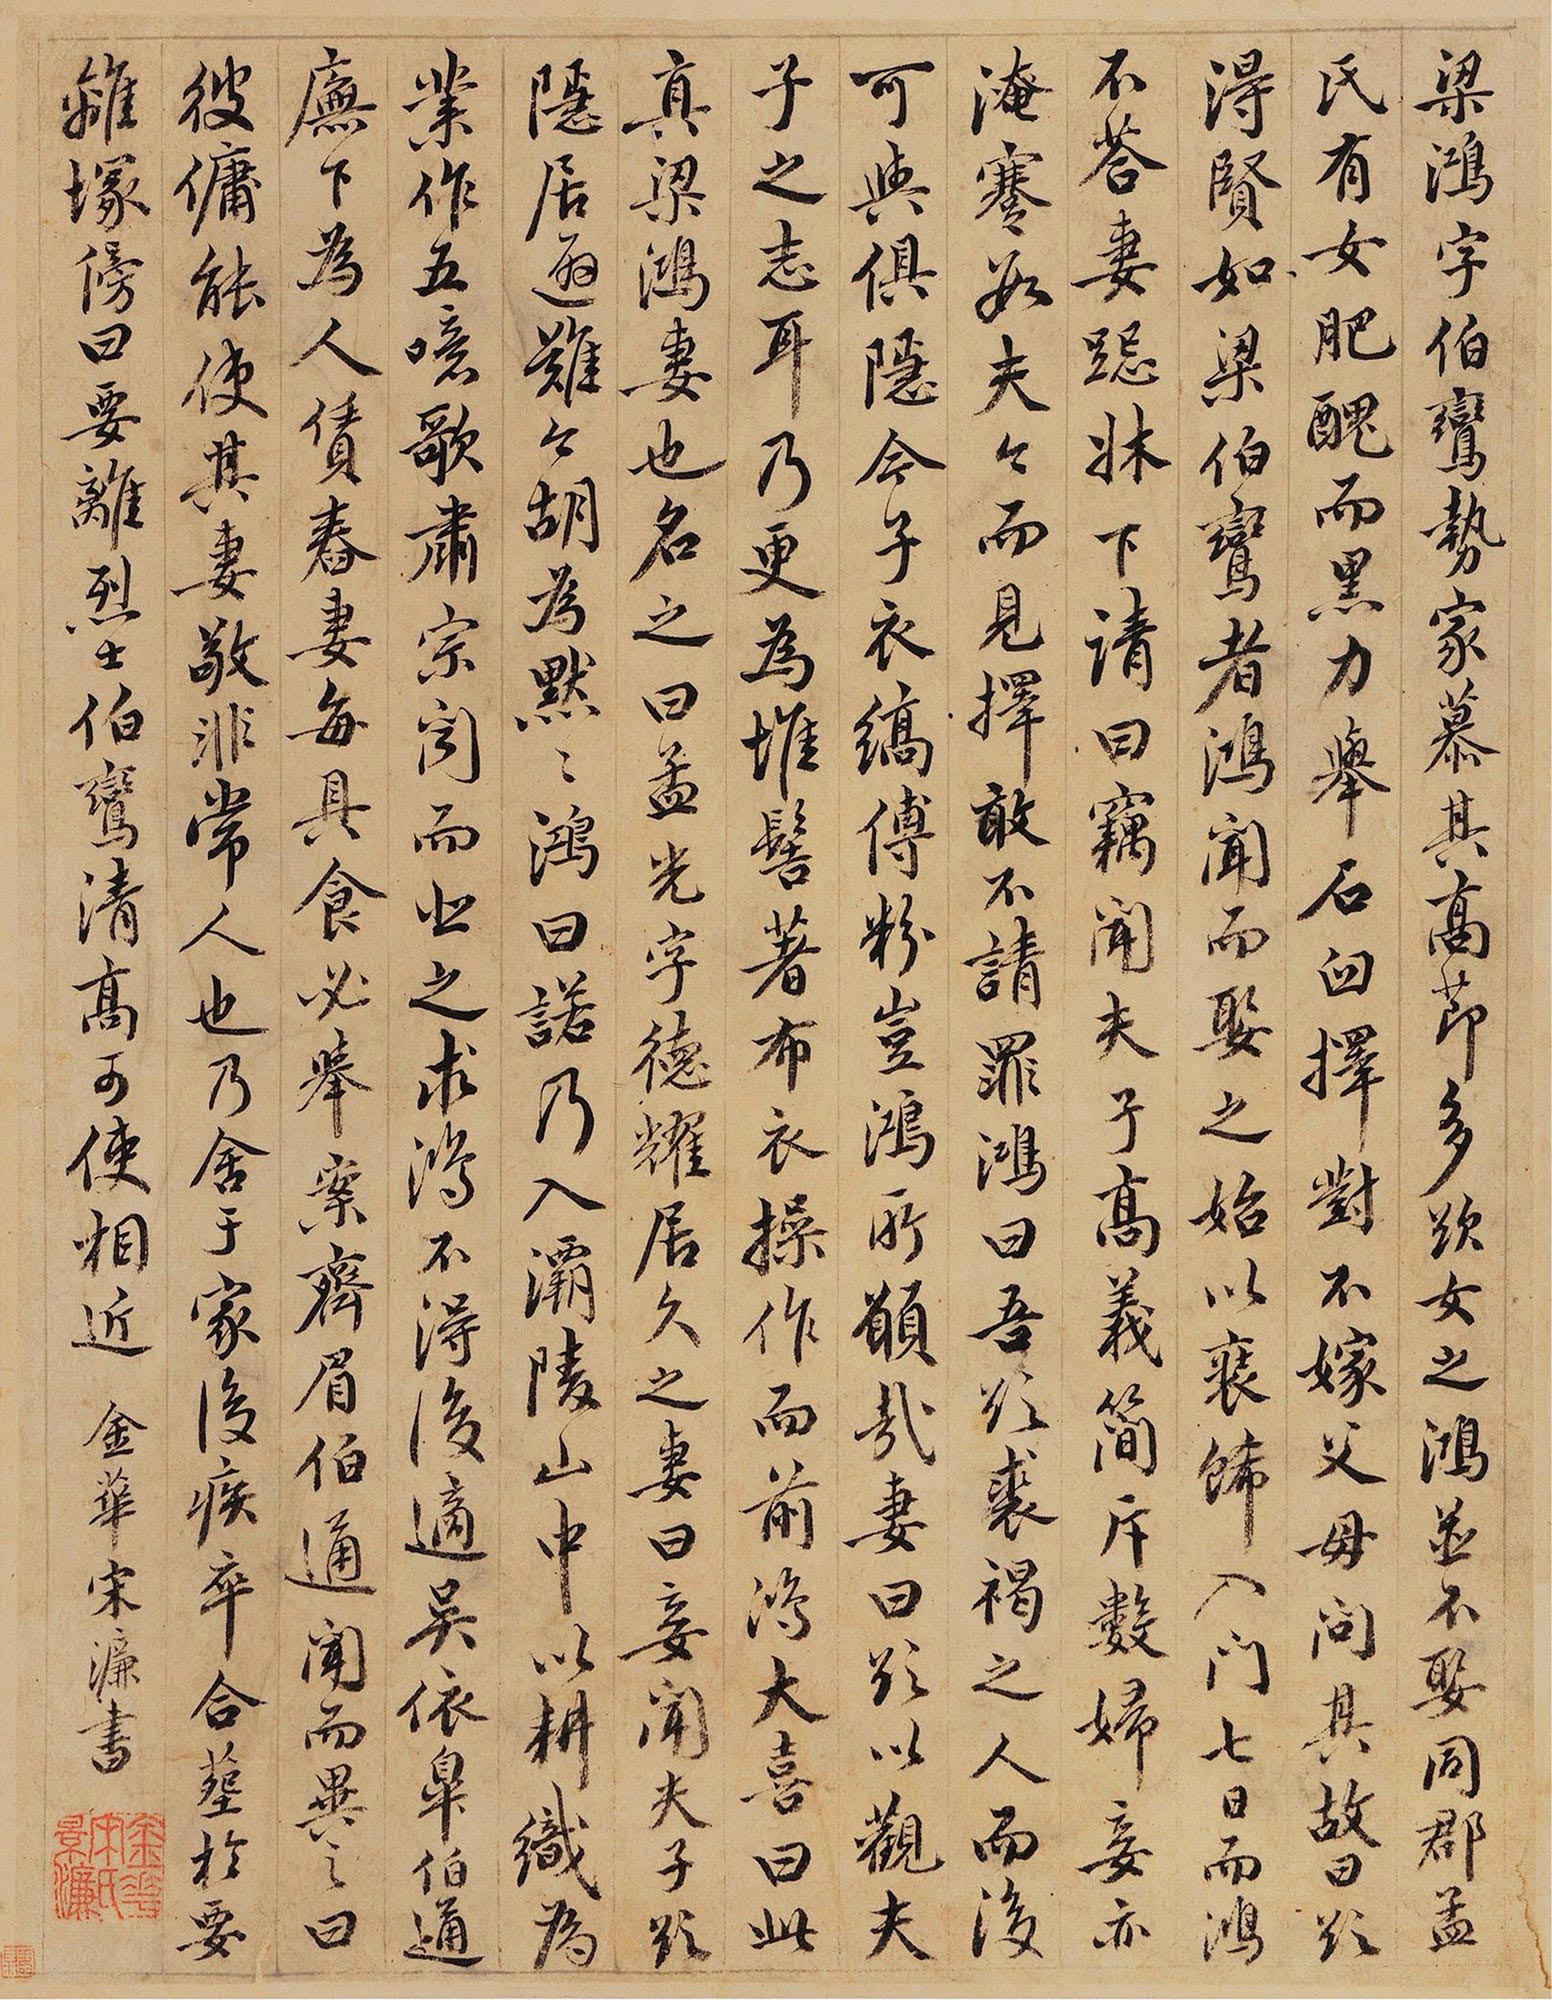 梁鴻字伯鸞勢家慕其高節多欲女之鴻並不娶同郡孟
氏有女肥醜而黑力舉石臼擇對不嫁父母問其故曰欲
得賢如梁伯鸞者鴻聞而娶之始以裝飾入門七日而鴻
不荅妻跽牀下請曰竊聞夫子高義簡斥數婦妾亦
淹蹇數夫々而見擇敢不請罪鴻曰吾欲裘褐之人而後
可與俱隱今子衣縞傅粉豈鴻所願哉妻曰欲以觀夫
子之志耳乃更為堆髻著布衣操作而前鴻大喜曰此
真梁鴻妻也名之曰孟光字德耀居久之妻曰妾聞夫子欲
隱居避難今胡為默々鴻曰諾乃入灞陵山中以耕織為
業作五噫歌肅宗聞而悲之求鴻不得後適吳依皐伯通
廡下為人賃舂妻每具食必舉案齊眉伯通聞而異之曰
彼傭能使其妻敬非常人也乃舍于家後疾卒合塟於要
離塚傍曰要離烈士伯鸞清高可使相近 金華宋濂書
金華宋氏景濂